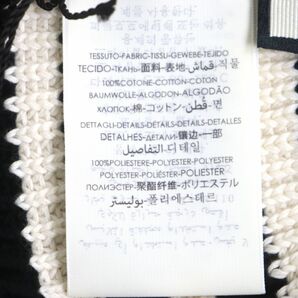 TESSUTO-FABRIC-TISSU-GEWEBE-TEJIDO
TECIDO-ТКАНЬ-面料-表地-قماش-직물
100%COTONE-COTTON-COTON
BAUMWOLLE-ALGODON-ALGODÃO
ХЛОПОК-棉-コットン-قطن-면
DETTAGLI-DETAILS-DÉTAILS-DETAILS-DETALLES
DETALHES-ДЕТАЛИ-镶边-一部
التفاصيل-디테일
100%POLIESTERE-POLYESTER-POLYESTER
POLYESTER-POLIÉSTER-POLIÉSTER
ПОЛИЭСТЕР-聚酯纤维-ポリエステル
بوليستر-폴리에스테르